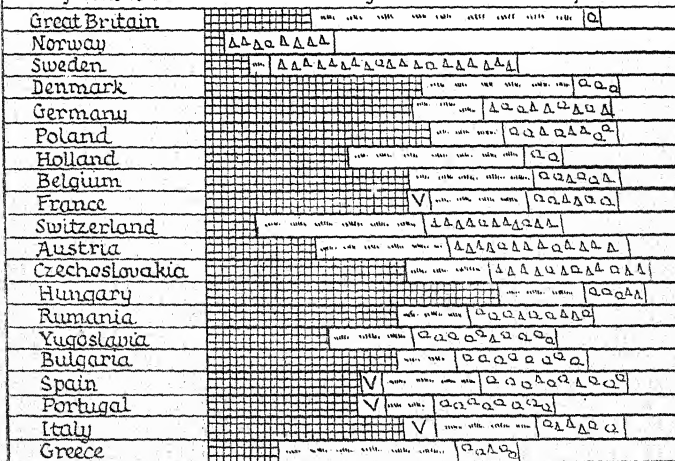 Great Britain
Norway
Sweden
Denmark
Germany
Poland
Holland
Belgium
France V
Switzerland
Austria
Czechoslovakia
Hungary
Rumania
Yugoslavia
Bulgaria
Spain V
Portugal V
Italy V
Greece